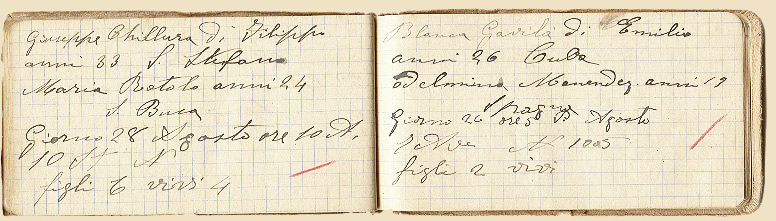 Giuseppe Chillura di Filippo
anni 33 S. Stefano
Maria Rotolo anni 24
S. Buca
Giorno 28 Agosto ore 10 A.
10 St N
figli 6 vivi 4
Blanca Gavila di Emilio
anni 26 Cuba
Odelmina Menendez anni 19
Spagna
Giorno 26 ore 5 Agosto
7 Ave N 1005
figli 2 vivi